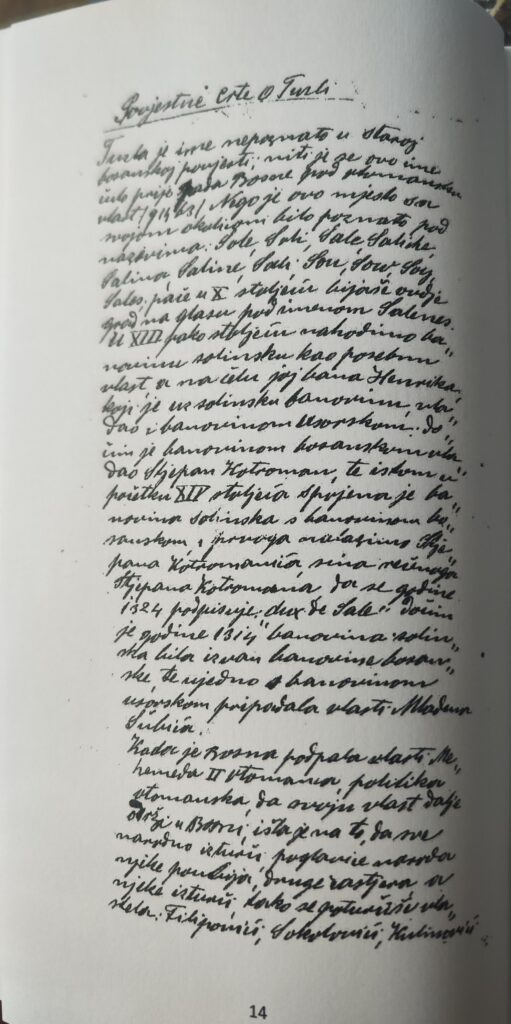 Povjestne crte o Tuzli
Tuzla je ime nepoznato u staroj
bosanskoj povjesti; niti je se ovo ime
čulo prije pada Bosne pod otomansku
vlast /1463/ Nego je ovo mjesto sa
svojom okolicom bilo poznato pod
nazivima: Sole, Soli, Sale, Salické,
Salina Saline, Sali Sou, Sow, Soy
Sales. pače u X stoljeću bijaše ovdje
grad na glasu pod imenom Salenes.
U XIII pako stoljeću nahodimo ba„
novinu solinsku kao posebnu
vlast a na čelu joj bana Henrika,
koji je uz solinsku banovinu, vla„
dao i banovinom Usorskom. do„
čim je banovinom bosanskom vla„
dao Stjepan Kotroman, te iskom u
početku XIV stoljeća spojena je ba„
novina solinska s banovinom bo„
sanskom, i prvoga nalazimo Stje„
pana Kotromanića, sina rečenoga
Stjepana Kotromana, da se godine
1324 podpisuje „dux de Sale" dočim
je godine 1314 banovina solin„
ska bila izvan banovine bosan„
ske te ujedno s banovinom
usorskom pripadala vlasti Mladena
Šubića.
Kada je Bosna podpala vlasti Me„
hemeda II otomana, politika
otomanska, da svoju vlast dalje
održi u Bosni, išla je na to, da sve
narodno izturči poglavice naroda
njeke poubija, druge rastjera a
njeke isturči. tako se poturčiše vla„
stela: Filipovići, Sokolovići, Kulinovići
14